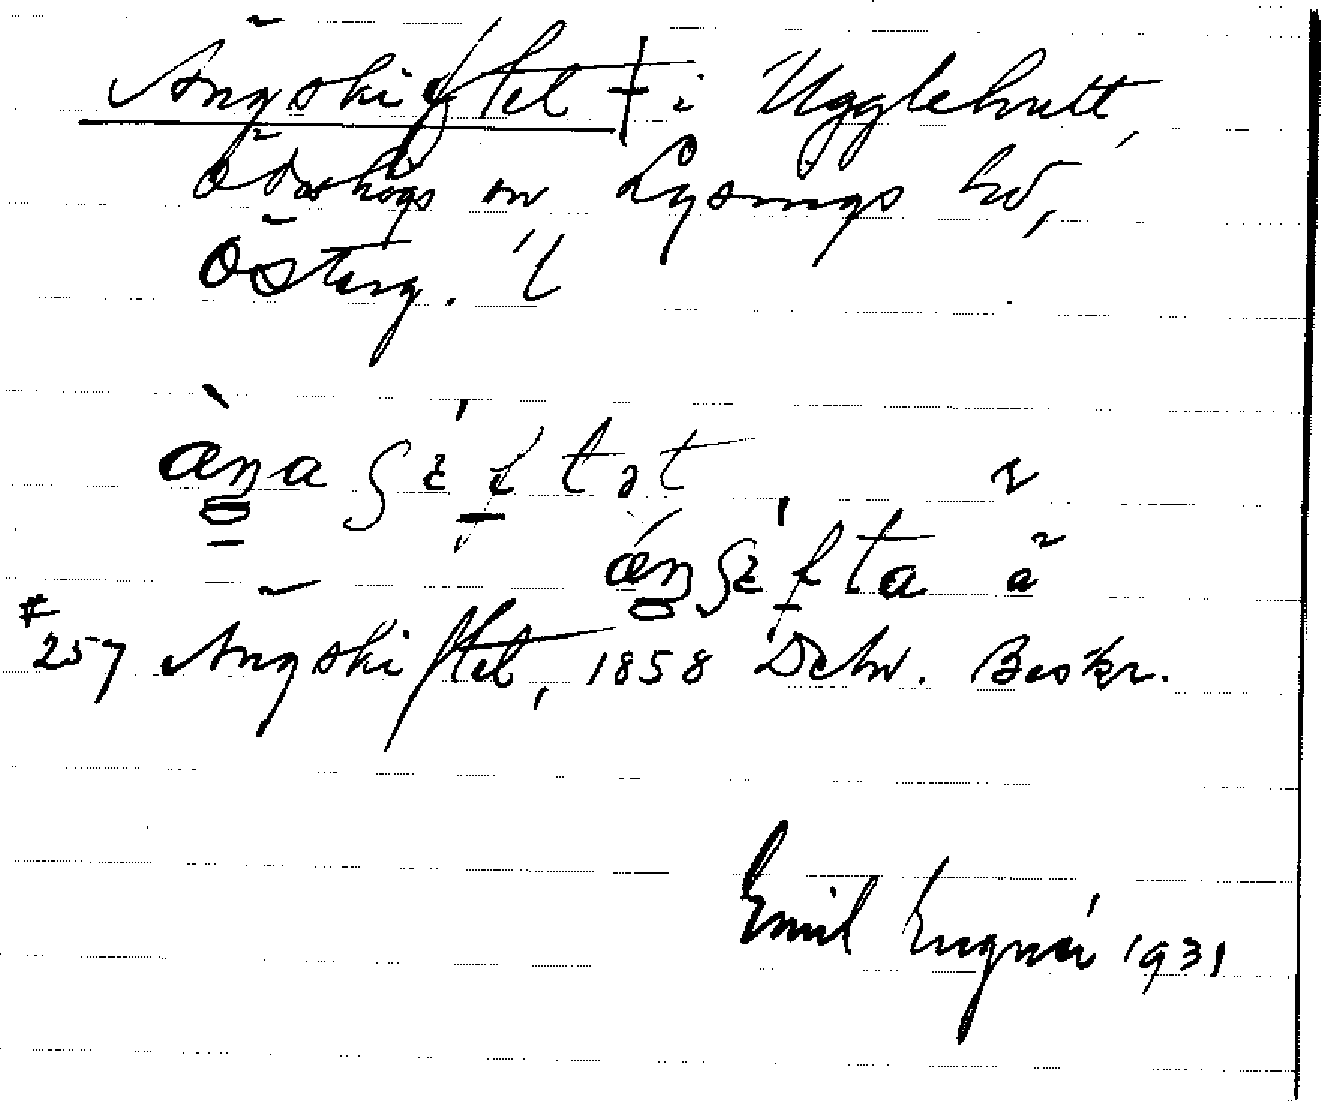 Ängskiftet † i Ugglehult,
Ödeshögs sn Lysings hd,
Österg. l
æŋa ʃɩftət
æŋʃɩfta ä
257 Ängskiftet, 1858 Deln. Beskr.
Emil Lugnér 1931